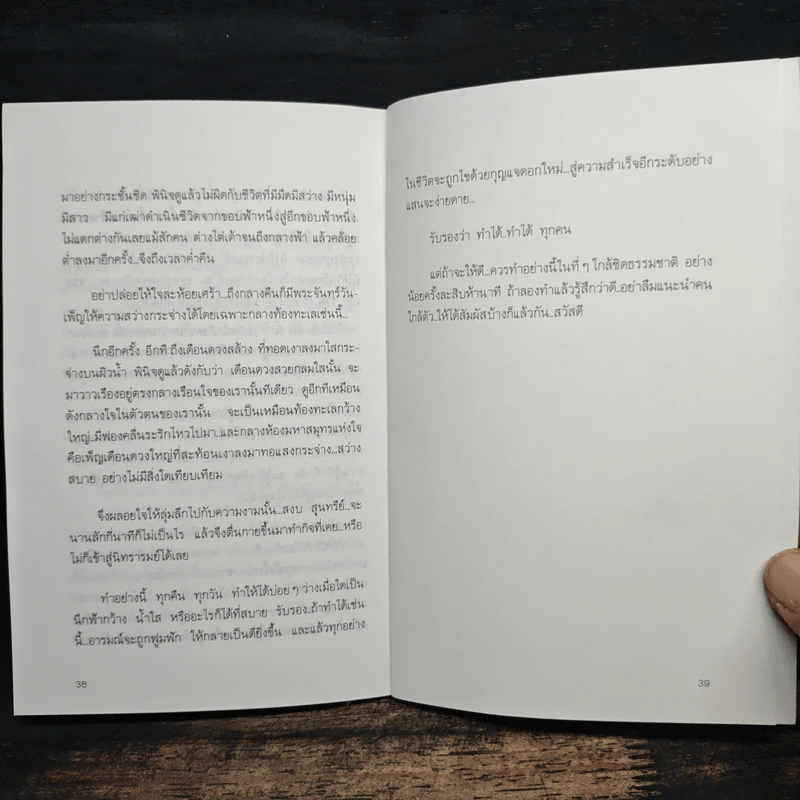 มาอย่างกระชั้นชิด พินิจดูแล้วไม่ผิดกับชีวิตที่มีมืดมีสว่าง มีหนุ่ม
มีสาว มีแก่เฒ่าดำเนินชีวิตจากขอบฟ้าหนึ่งสู่อีกขอบฟ้าหนึ่ง
ไม่แตกต่างกันเลยแม้สักคน ต่างไต่เต้าจนถึงกลางฟ้า แล้วคล้อย
ต่ำลงมาอีกครั้ง...จึงถึงเวลาค่ำคืน
อย่าปล่อยให้ใจละห้อยเศร้า...ถึงกลางคืนก็มีพระจันทร์วัน-
เพ็ญให้ความสว่างกระจ่างได้โดยเฉพาะกลางท้องทะเลเช่นนี้...
นึกอีกครั้ง อีกที ถึงเดือนดวงสล้าง ที่ทอดเงาลงมาใสกระ-
จ่างบนผิวน้ำ พินิจดูแล้วดังกับว่า เดือนดวงสวยกลมใสนั้น จะ
มาวาวเรืองอยู่ตรงกลางเรือนใจของเรานั้นทีเดียว ดูอีกทีเหมือน
ดังกลางใจในตัวตนของเรานั้น จะเป็นเหมือนท้องทะเลกว้าง
ใหญ่..มีฟองคลื่นระริกไหวไปมา..และกลางห้องมหาสมุทรแห่งใจ
คือเพ็ญเดือนดวงใหญ่ที่สะท้อนเงาลงมาทอแสงกระจ่าง...สว่าง
สบาย อย่างไม่มีสิ่งใดเทียบเทียม
จึงผลอยใจให้ลุ่มลึกไปกับความงามนั้น...สงบ สุนทรีย์...จะ
นานสักกี่นาทีก็ไม่เป็นไร แล้วจึงตื่นกายขึ้นมาทำกิจที่เคย...หรือ
ไม่ก็เข้าสู่นิทรารมย์ได้เลย
ทำอย่างนี้ ทุกคืน ทุกวัน ทำให้ได้บ่อยๆ ว่างเมื่อใดเป็น
นึกฟ้ากว้าง น้ำใส หรืออะไรก็ได้ที่สบาย รับรอง..ถ้าทำได้เช่น
นี้...อารมณ์จะถูกฟูมฟัก ให้กลายเป็นดียิ่งขึ้น และแล้วทุกอย่าง
38
ในชีวิตจะถูกไขด้วยกุญแจดอกใหม่...สู่ความสำเร็จอีกระดับอย่าง
แสนจะง่ายดาย...
รับรองว่า ทำได้..ทำได้ ทุกคน
แต่ถ้าจะให้ดี...ควรทำอย่างนี้ในที่ๆ ใกล้ชิดธรรมชาติ อย่าง
น้อยครั้งละสิบห้านาที ถ้าลองทำแล้วรู้สึกว่าดี...อย่าลืมแนะนำคน
ใกล้ตัว..ให้ได้สัมผัสบ้างก็แล้วกัน...สวัสดี
39